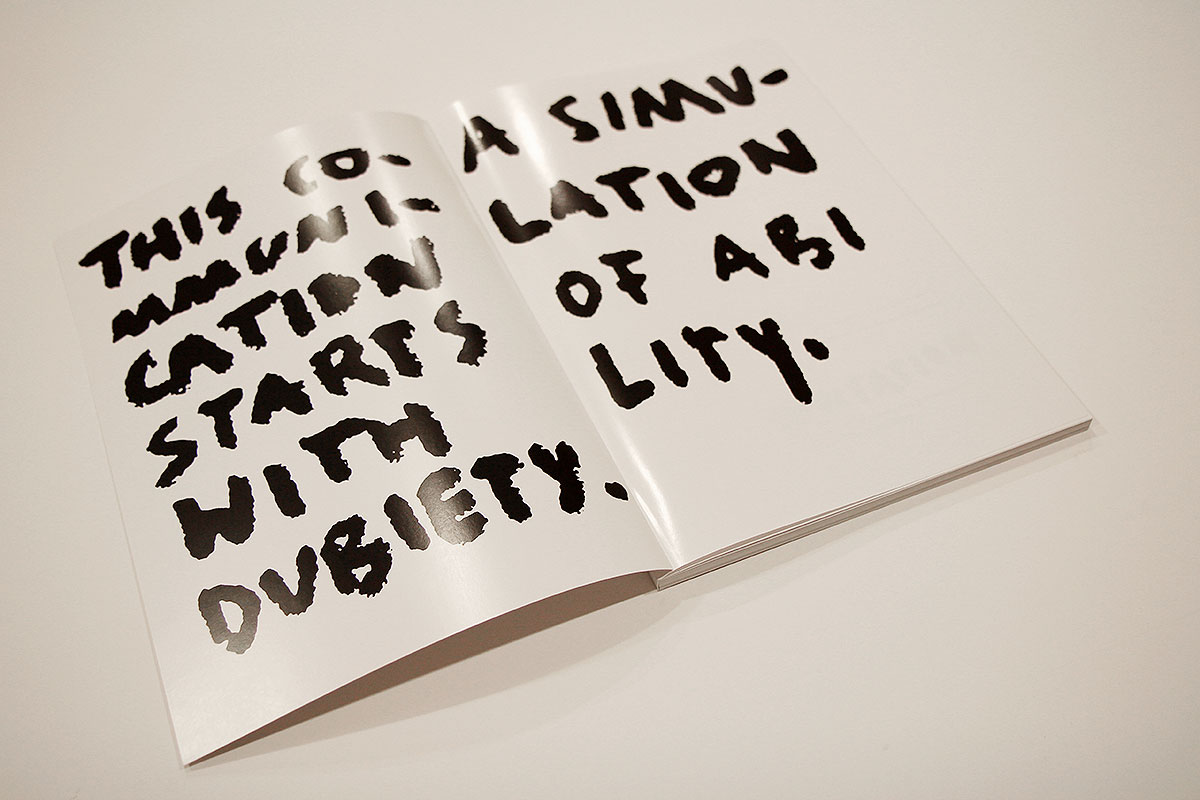 THIS CO-
MMUNI-
CATION
STARTS
WITH
DUBIETY.
A SIMU-
LATION
OF ABI
LITY.